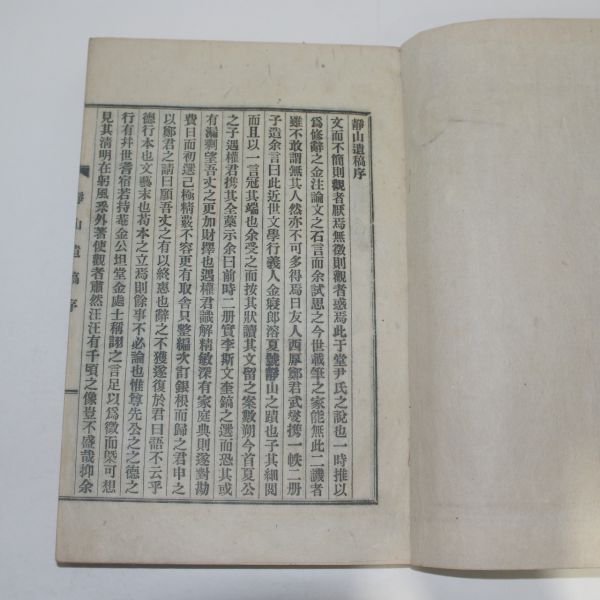 靜山遺稿序
文而不簡則觀者厭焉無徵則觀者惑焉此于堂尹氏之說也一時推以
爲修辭之金注論文之石言而余試思之今世載筆之家能無此二譏者
雖不敢謂無其人然亦不可多得焉日友人酉厚鄭君武燮携一帙二册
子造余言曰此近世文學行義人金寢郎溶夏號靜山之蹟也子其細閱
而且以一言冠其端也余受之而按其狀讀其文留之案數朔今首夏公
之子遇權君携其全藁示余曰前時二册實李斯文奎鎬之選而恐其或
有漏剩望吾丈之更加財擇也遇權君識解精敏深有家庭典則遂對勘
費日而初選已極精覈不容更有取舍只整編次訂銀根而歸之君申之
以鄭君之請曰願吾丈之有以終惠也辭之不獲遂復於君曰語不云乎
德行本也文藝末也苟本之立焉則餘事不必論也惟尊先公之之德之
行有幷世耆宿若持菴金公坦堂金處士稱詡之言足以爲徵而槩可想
見其淸明在躬風采外著使觀者肅然汪汪有千頃之像豈不盛哉抑余
靜山遺稿 序